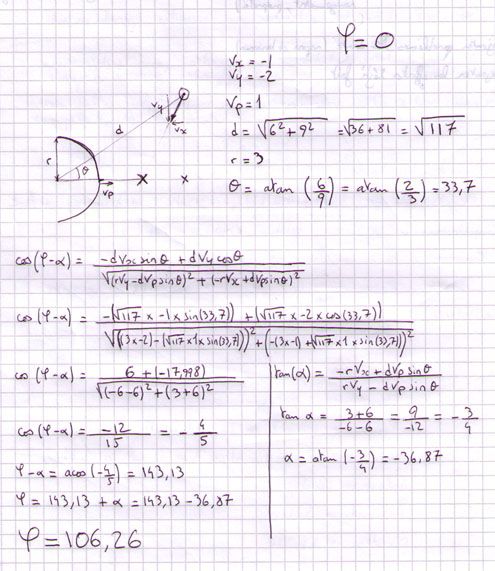 φ=0
Vx = -1
Vy = -2
Vp = 1
d = √6²+9² = √36+81 = √117
r = 3
θ = atan (6/9) = atan (2/3) = 33,7
Vy
d
Vx
r
θ
Vp
cos(φ-α) = -dVx sinθ + dVy cosθ / √(rVy-dVp sinθ)² + (-rVx+dVp sinθ)²
cos(φ-α) = -(√117 x -1 x sin(33,7)) + (√117 x -2 x cos(33,7)) / √((3x-2)-(√117 x 1 x sin(33,7)))² + (-(3x-1)+√117 x 1 x sin(33,7))²
cos(φ-α) = 6 + (-17,998) / √(-6-6)² + (3+6)²
cos(φ-α) = -12/15 = -4/5
φ-α = acos(-4/5) = 143,13
φ = 143,13 + α = 143,13 - 36,87
φ = 106,26
tan(α) = -rVx + dVp sinθ / rVy - dVp sinθ
tan α = 3+6/-6-6 = 9/-12 = -3/4
α = atan (-3/4) = -36,87